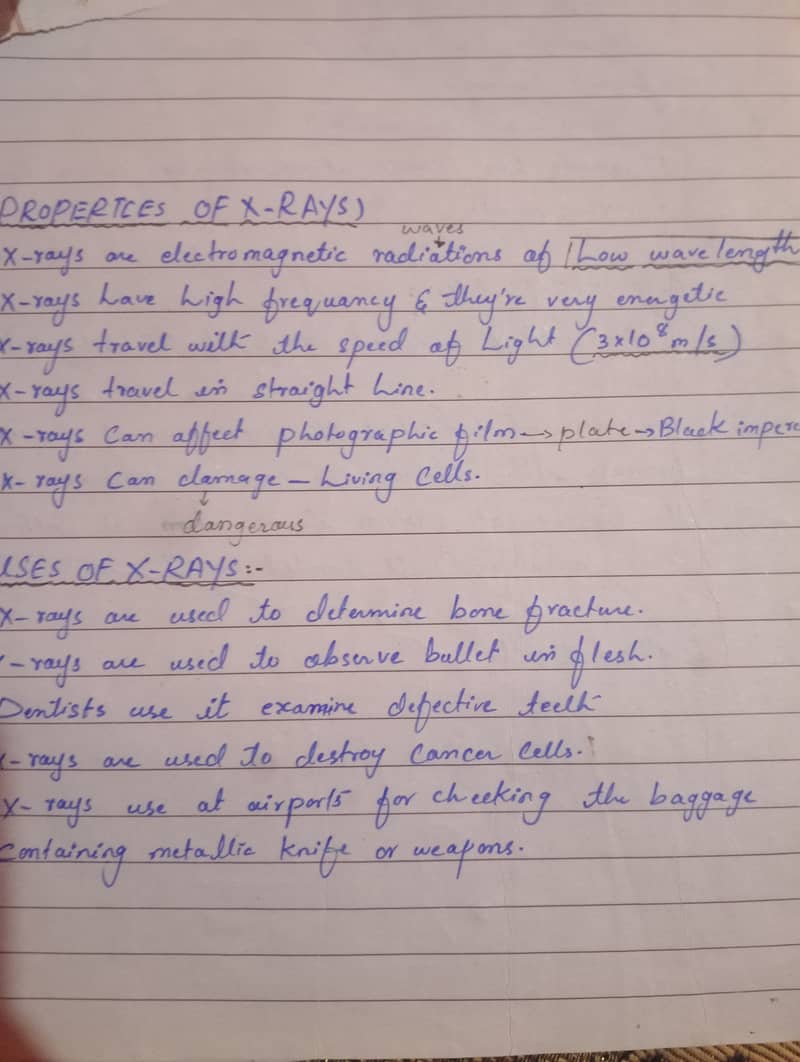 PROPERTCES OF X-RAYS)
waves
X-rays are electromagnetic radiations of Low wavelength
X-rays have high frequancy & they're very energetic
X-rays travel with the speed of Light (3x10⁸m/s)
X-rays travel in straight Line.
X-rays Can affect photographic film→plate→Black
X-rays Can damage - Living Cells.
↓
dangerous
USES OF X-RAYS:-
X-rays are used to determine bone fracture.
-rays are used to observe bullet in flesh.
Dentists use it examine defective teeth
X-rays are used to destroy Cancer Cells.
X-rays use at airports for checking the baggage
Containing metallic knife or weapons.